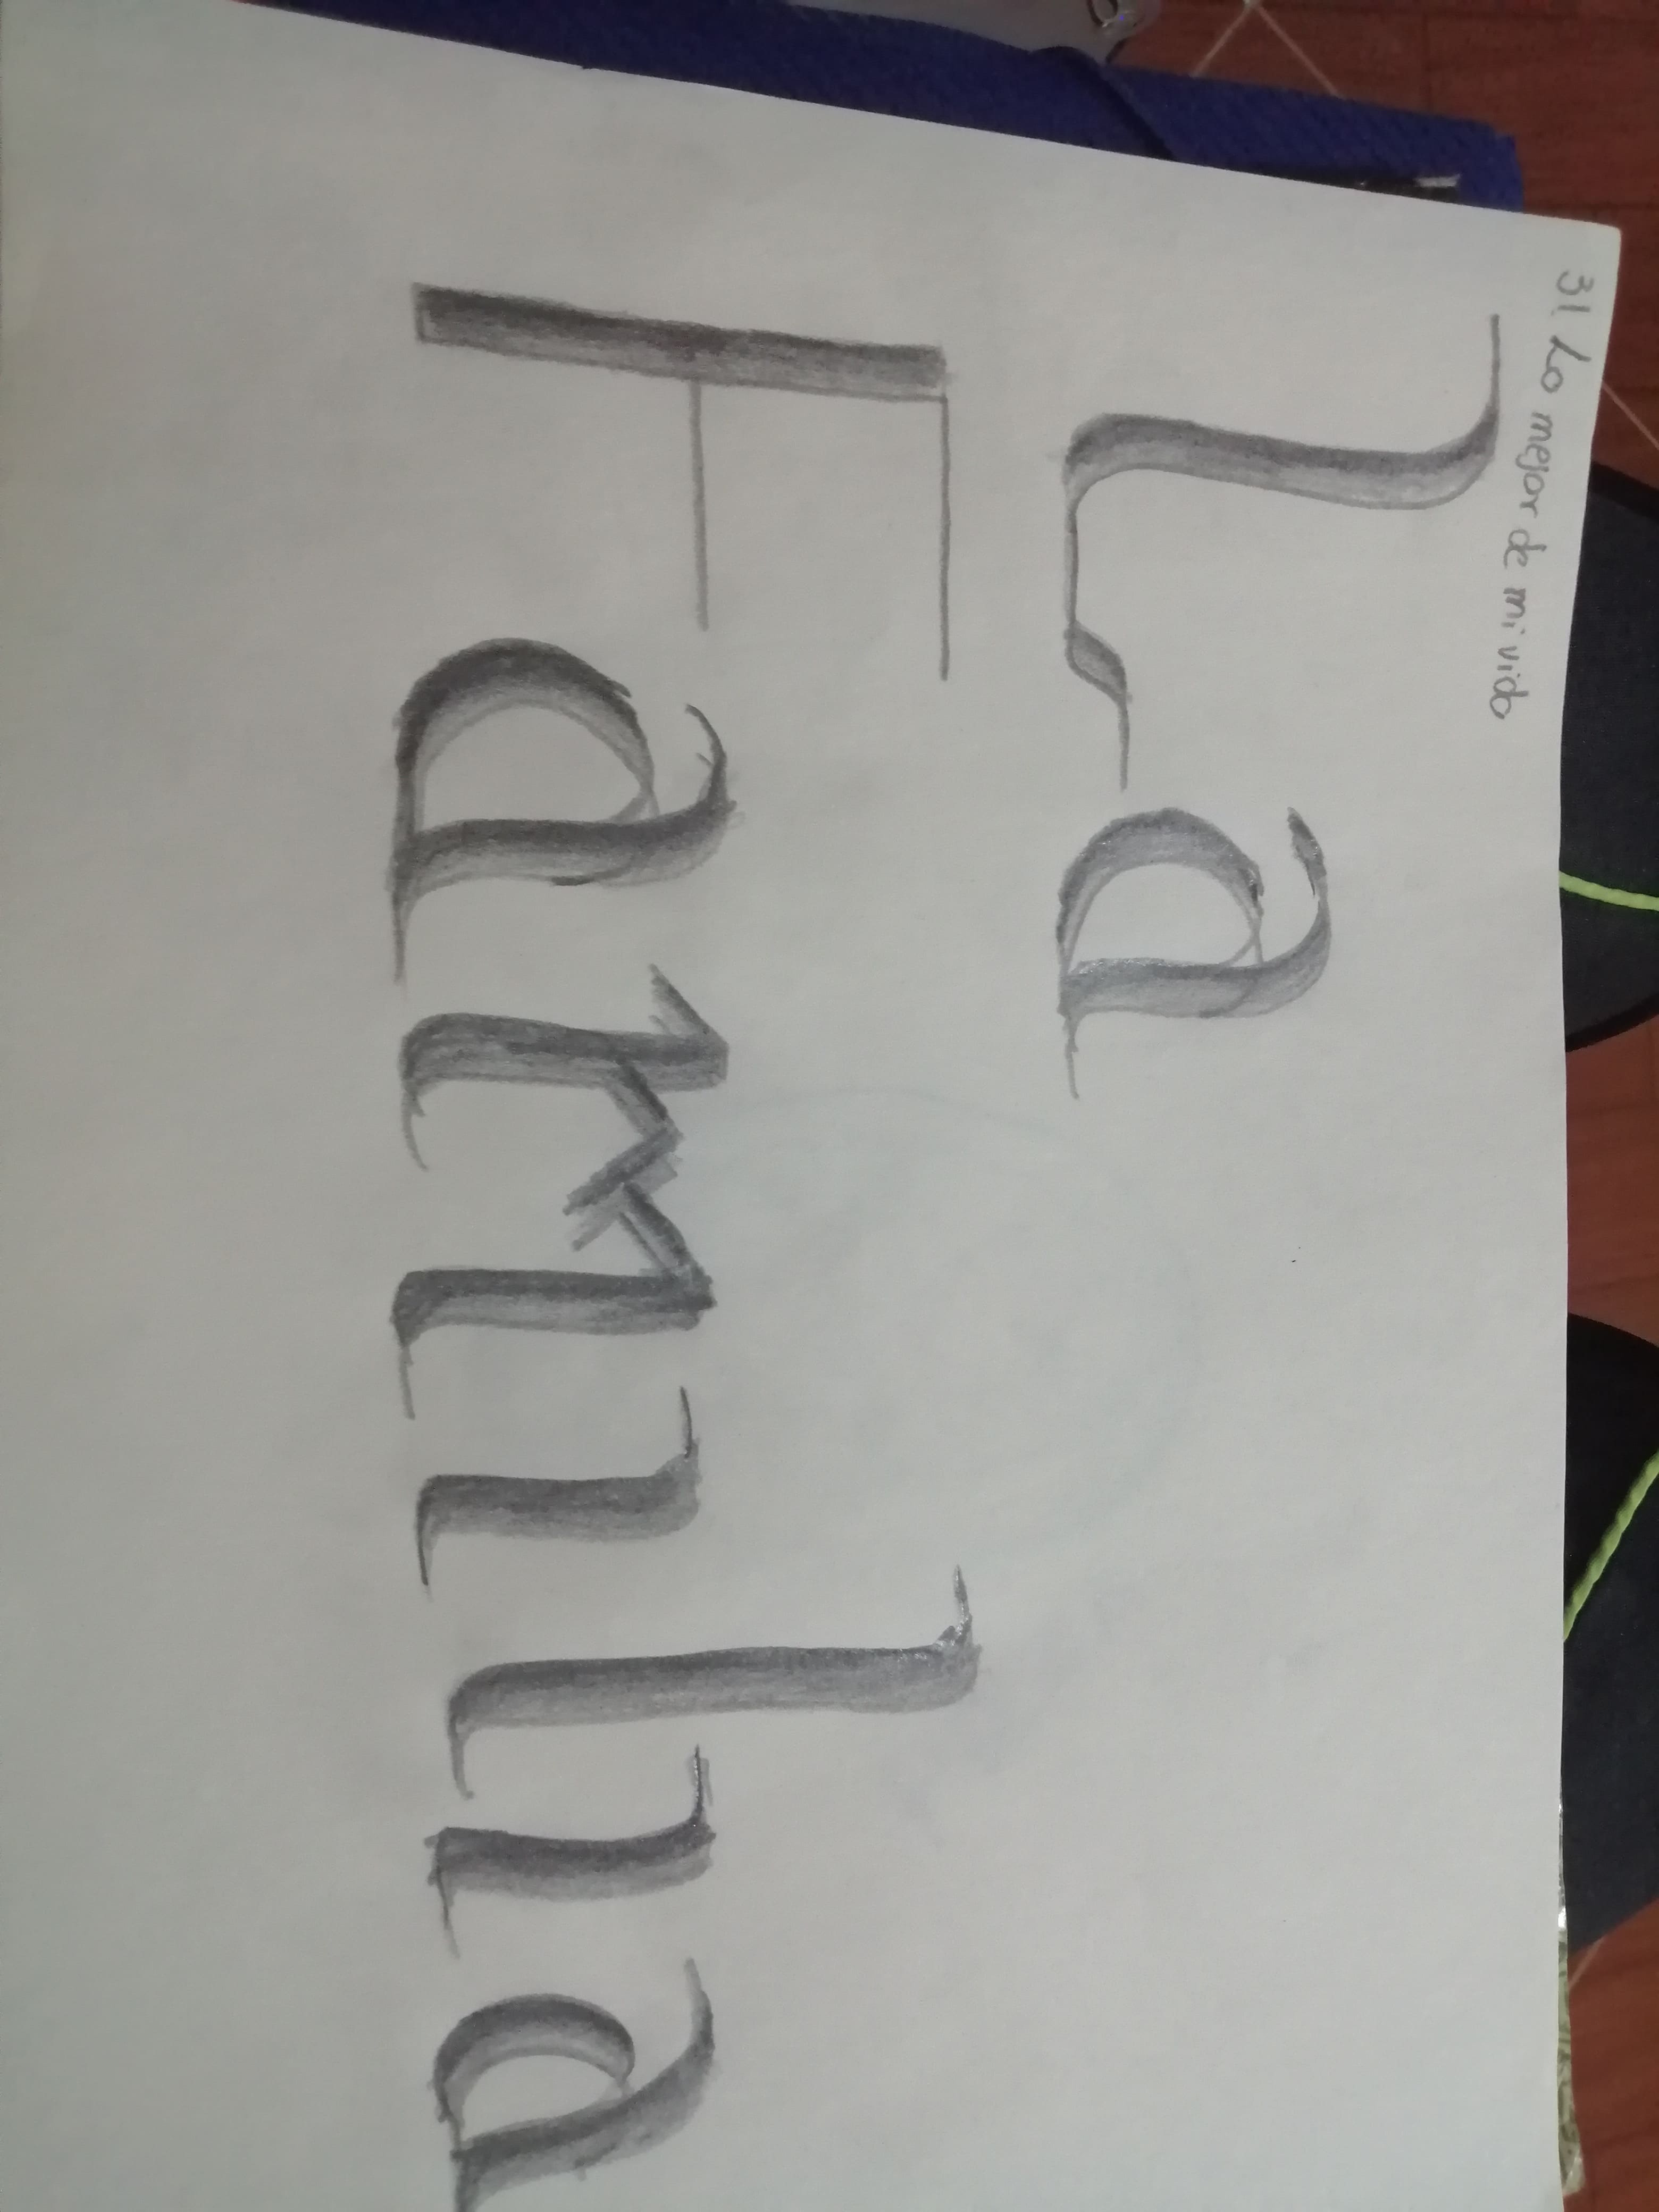 31. Lo mejor de mi vida
La
Familia